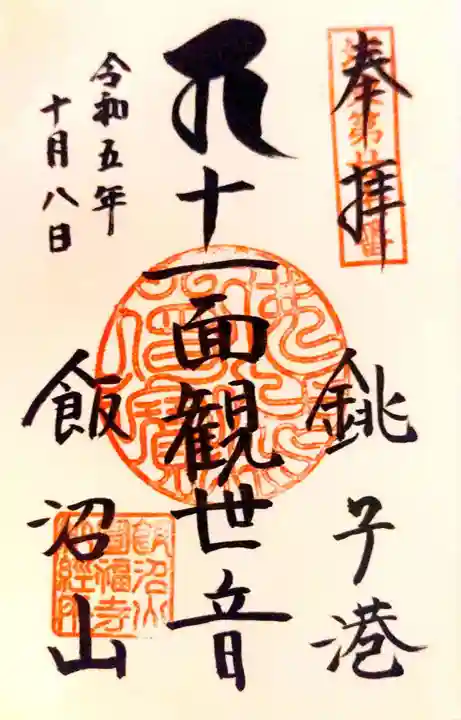 奉拝
銚子港
十一面観世音
令和五年
十月八日
飯沼山
飯沼山
圓福寺
納経所